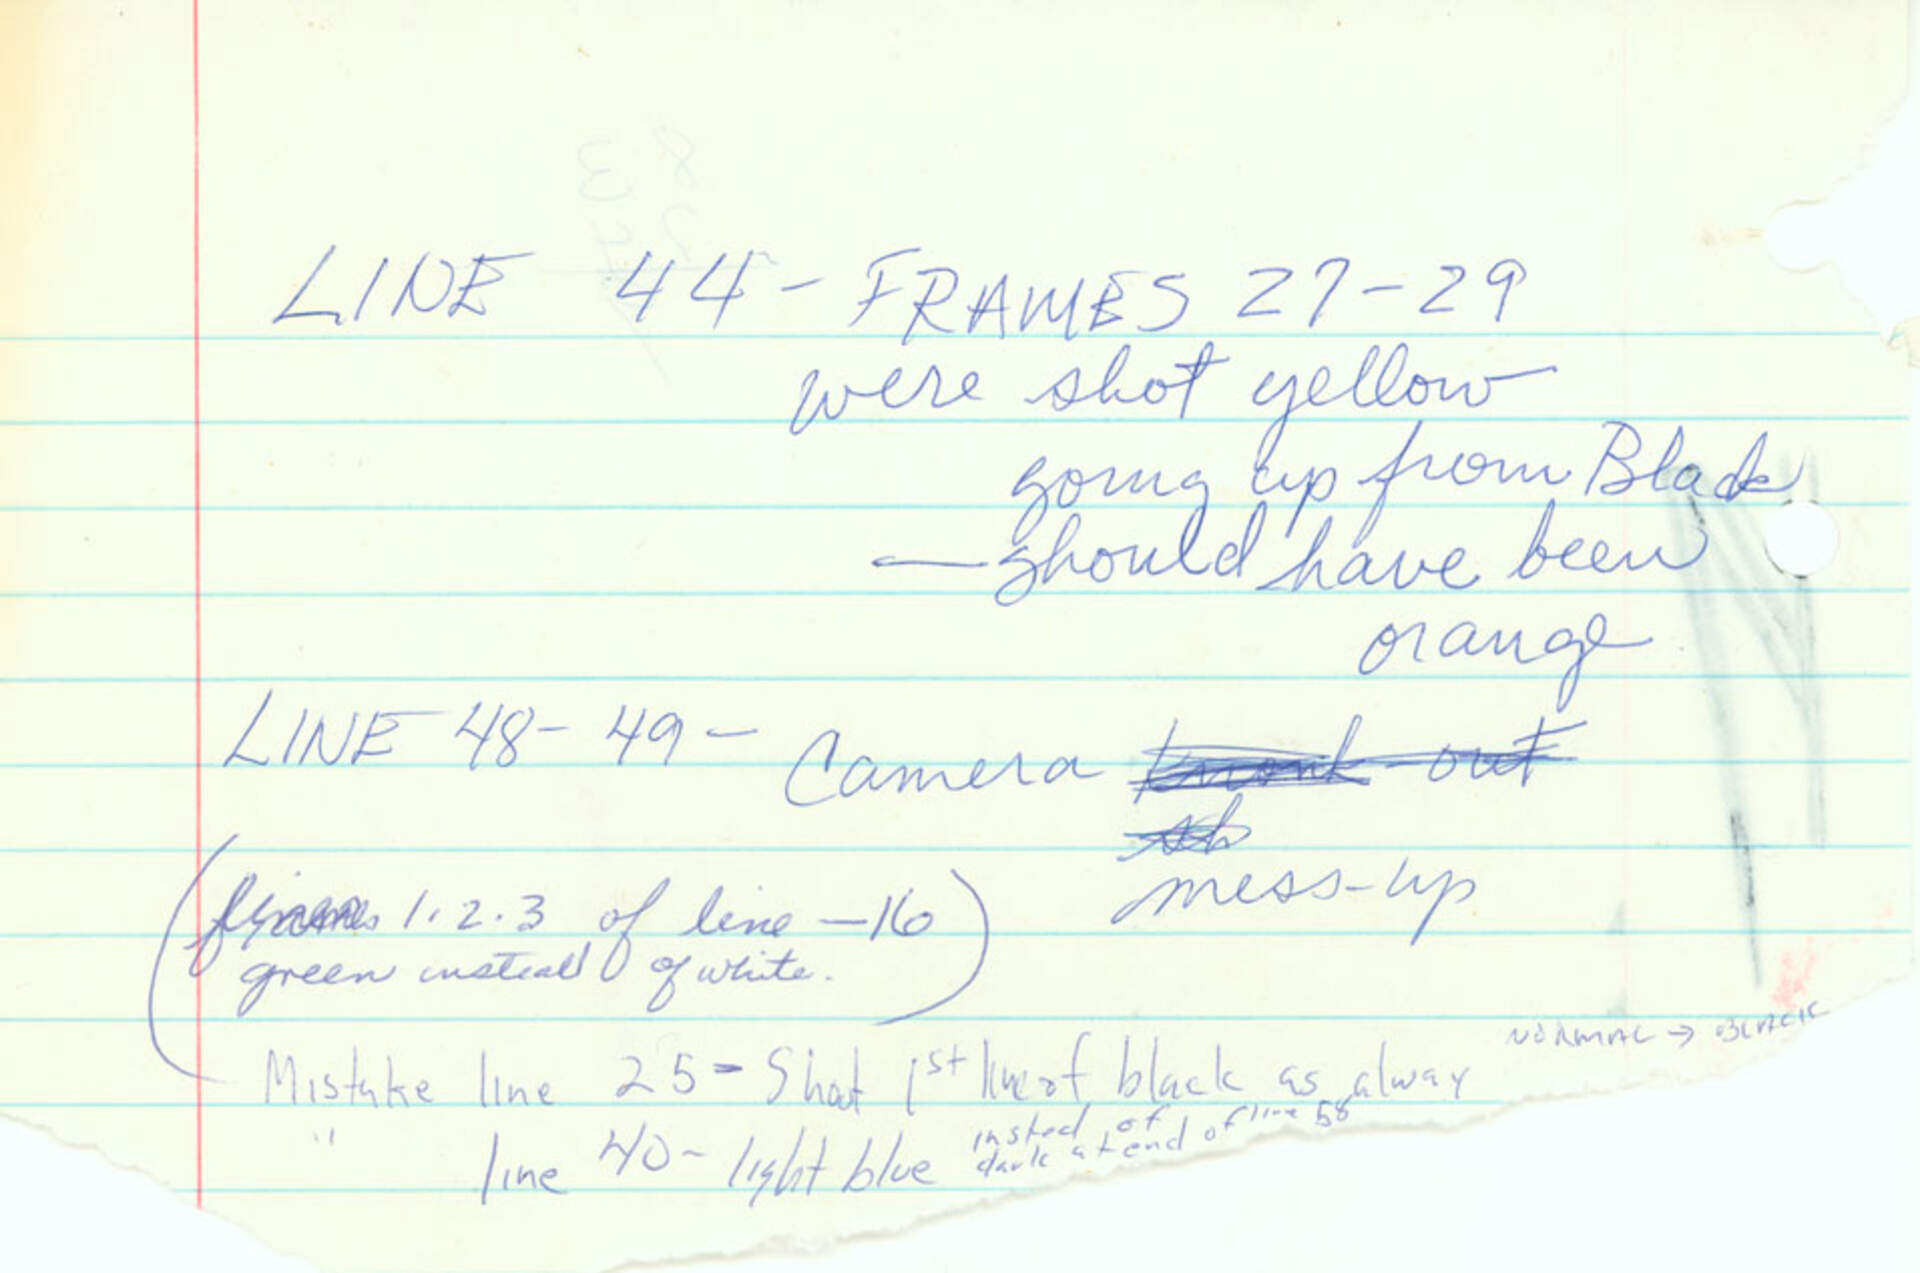 LINE 44 - FRAMES 27-29
were shot yellow
going up from Black
— should have been
orange
LINE 48-49 - Camera out
mess-up
1.2.3 of line -16
green instead of white.
NORMAL → BLACK
Mistake line 25 - Shot 1st line of black as alway
" line 40 - light blue insted of
dark at end of line 58